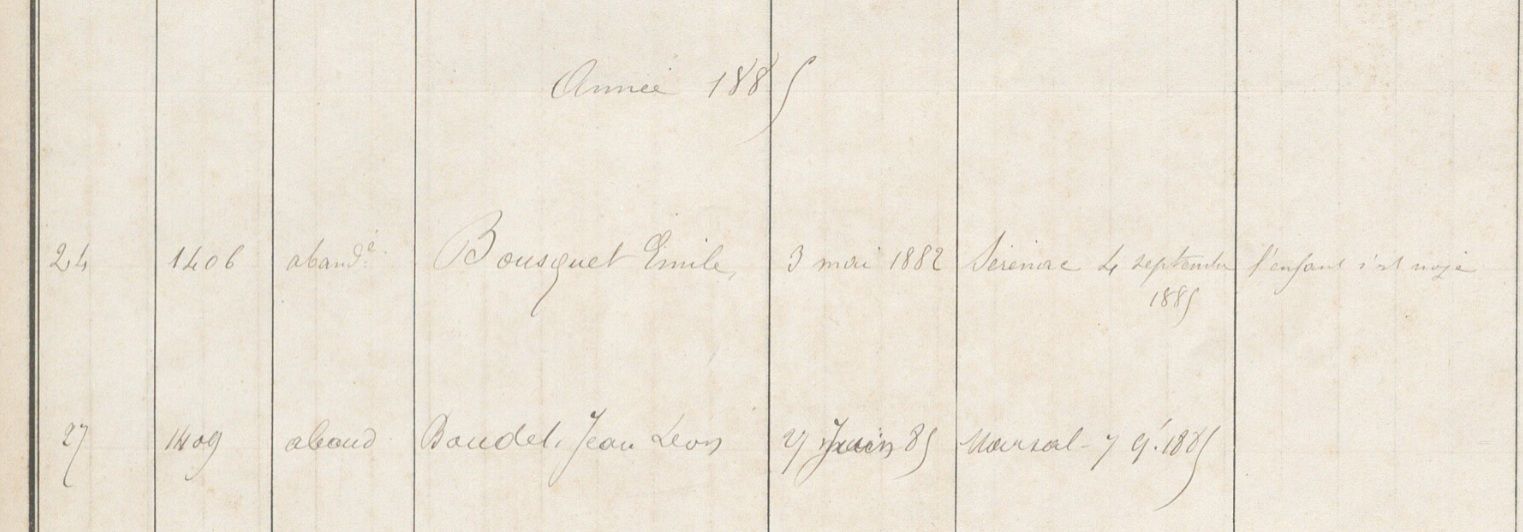 Année 1885
24 1406 aband.é Bousquet Emile, 3 mai 1882 Sérénac 4 septembre l'enfant s'est noyé
1885
27 1409 aband Boudet, Jean Léon 27 Juin 85 Marsal - 7 9.1885